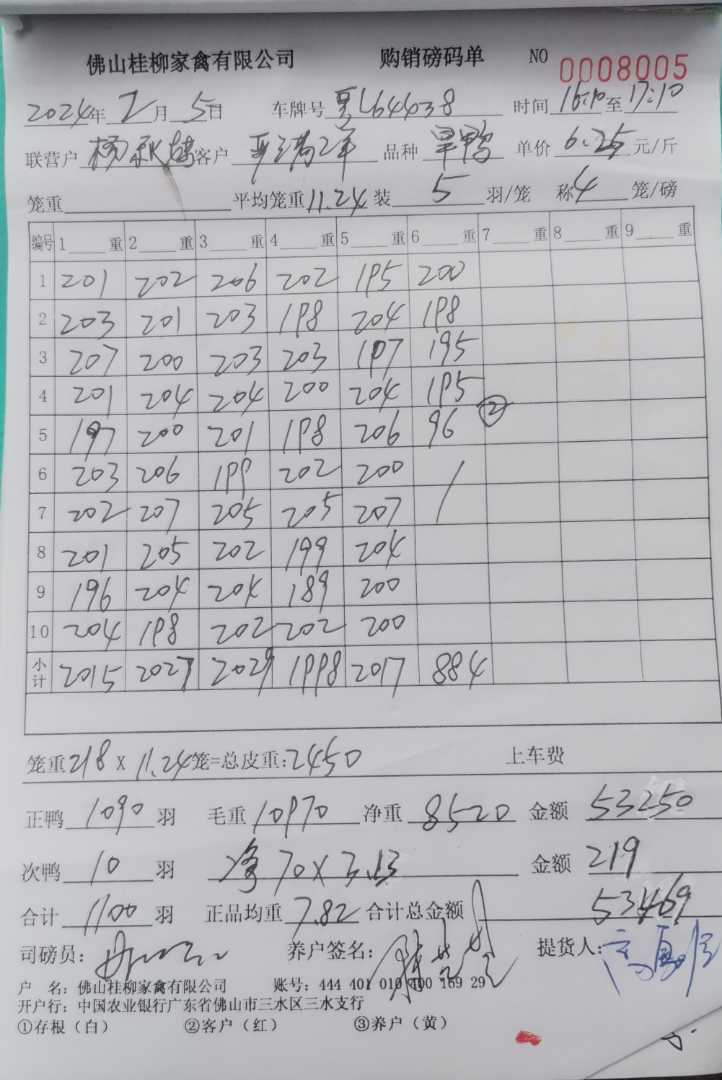 佛山桂柳家禽有限公司 购销磅码单 NO 0008005
2024年2月5日 车牌号 粤L64438 时间 16:10至17:10
联营户 杨 客户 品种 旱鸭 单价 6.25 元/斤
笼重 平均笼重 11.24 装 5 羽/笼 称 4 笼/磅
编号 1 重 2 重 3 重 4 重 5 重 6 重 7 重 8 重 9 重
1 201 202 206 202 195 200
2 203 201 203 198 204 198
3 207 200 203 203 197 195
4 201 204 204 200 204 195
5 197 200 201 198 206 96 ②
6 203 206 199 202 200 /
7 202 207 205 205 207
8 201 205 202 199 204
9 196 204 204 189 200
10 204 198 202 202 200
小计 2015 2027 2029 1998 2017 884
笼重 218 X 11.24 笼=总皮重: 2450 上车费
正鸭 1090 羽 毛重 10970 净重 8520 金额 53250
次鸭 10 羽 净 70 X 3.13 金额 219
合计 1100 羽 正品均重 7.82 合计总金额 53469
司磅员: 养户签名: 提货人:
户 名: 佛山桂柳家禽有限公司 账号: 444 401 010 400 169 29
开户行: 中国农业银行广东省佛山市三水区三水支行
①存根（白） ②客户（红） ③养户（黄）